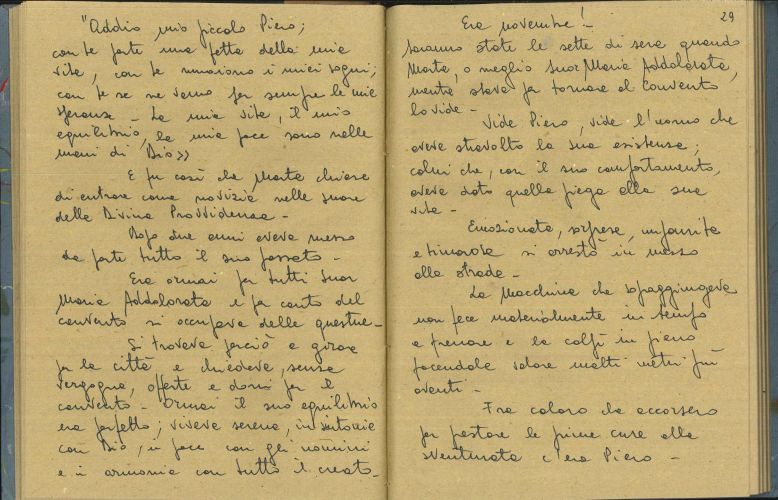 "Addio mio piccolo Piero;
con te parte una fetta della mia
vita, con te muoiono i miei sogni;
con te se ne vanno per sempre le mie
speranze - La mia vita, il mio
equilibrio, la mia pace sono nelle
mani di Dio»
E fu così che Marta chiese
di entrare come novizia nelle suore
della Divina Provvidenza -
Dopo due anni aveva messo
da parte tutto il suo passato -
Era ormai per tutti Suor
Maria Addolorata e per conto del
convento si occupava delle questue -
Si trovava perciò a girare
per la città e chiedeva, senza
vergogna, offerte e doni per il
convento - Ormai il suo equilibrio
era perfetto; viveva serena, in sintonia
con Dio, in pace con gli uomini
e in armonia con tutto il creato -
29
Era novembre! -
Saranno state le sette di sera quando
Marta, o meglio Suor Maria Addolorata,
mentre stava per tornare al convento
lo vide -
Vide Piero, vide l'uomo che
aveva stravolto la sua esistenza;
colui che, con il suo comportamento,
aveva dato quella piega alla sua
vita -
Emozionata, sorpresa, impaurita
e timorosa si arrestò in mezzo
alla strada -
La macchina che sopraggiungeva
non fece materialmente in tempo
a frenare e la colpì in pieno
facendola volare molti metri più
avanti -
Fra coloro che accorsero
per prestare le prime cure alla
sventurata c'era Piero -